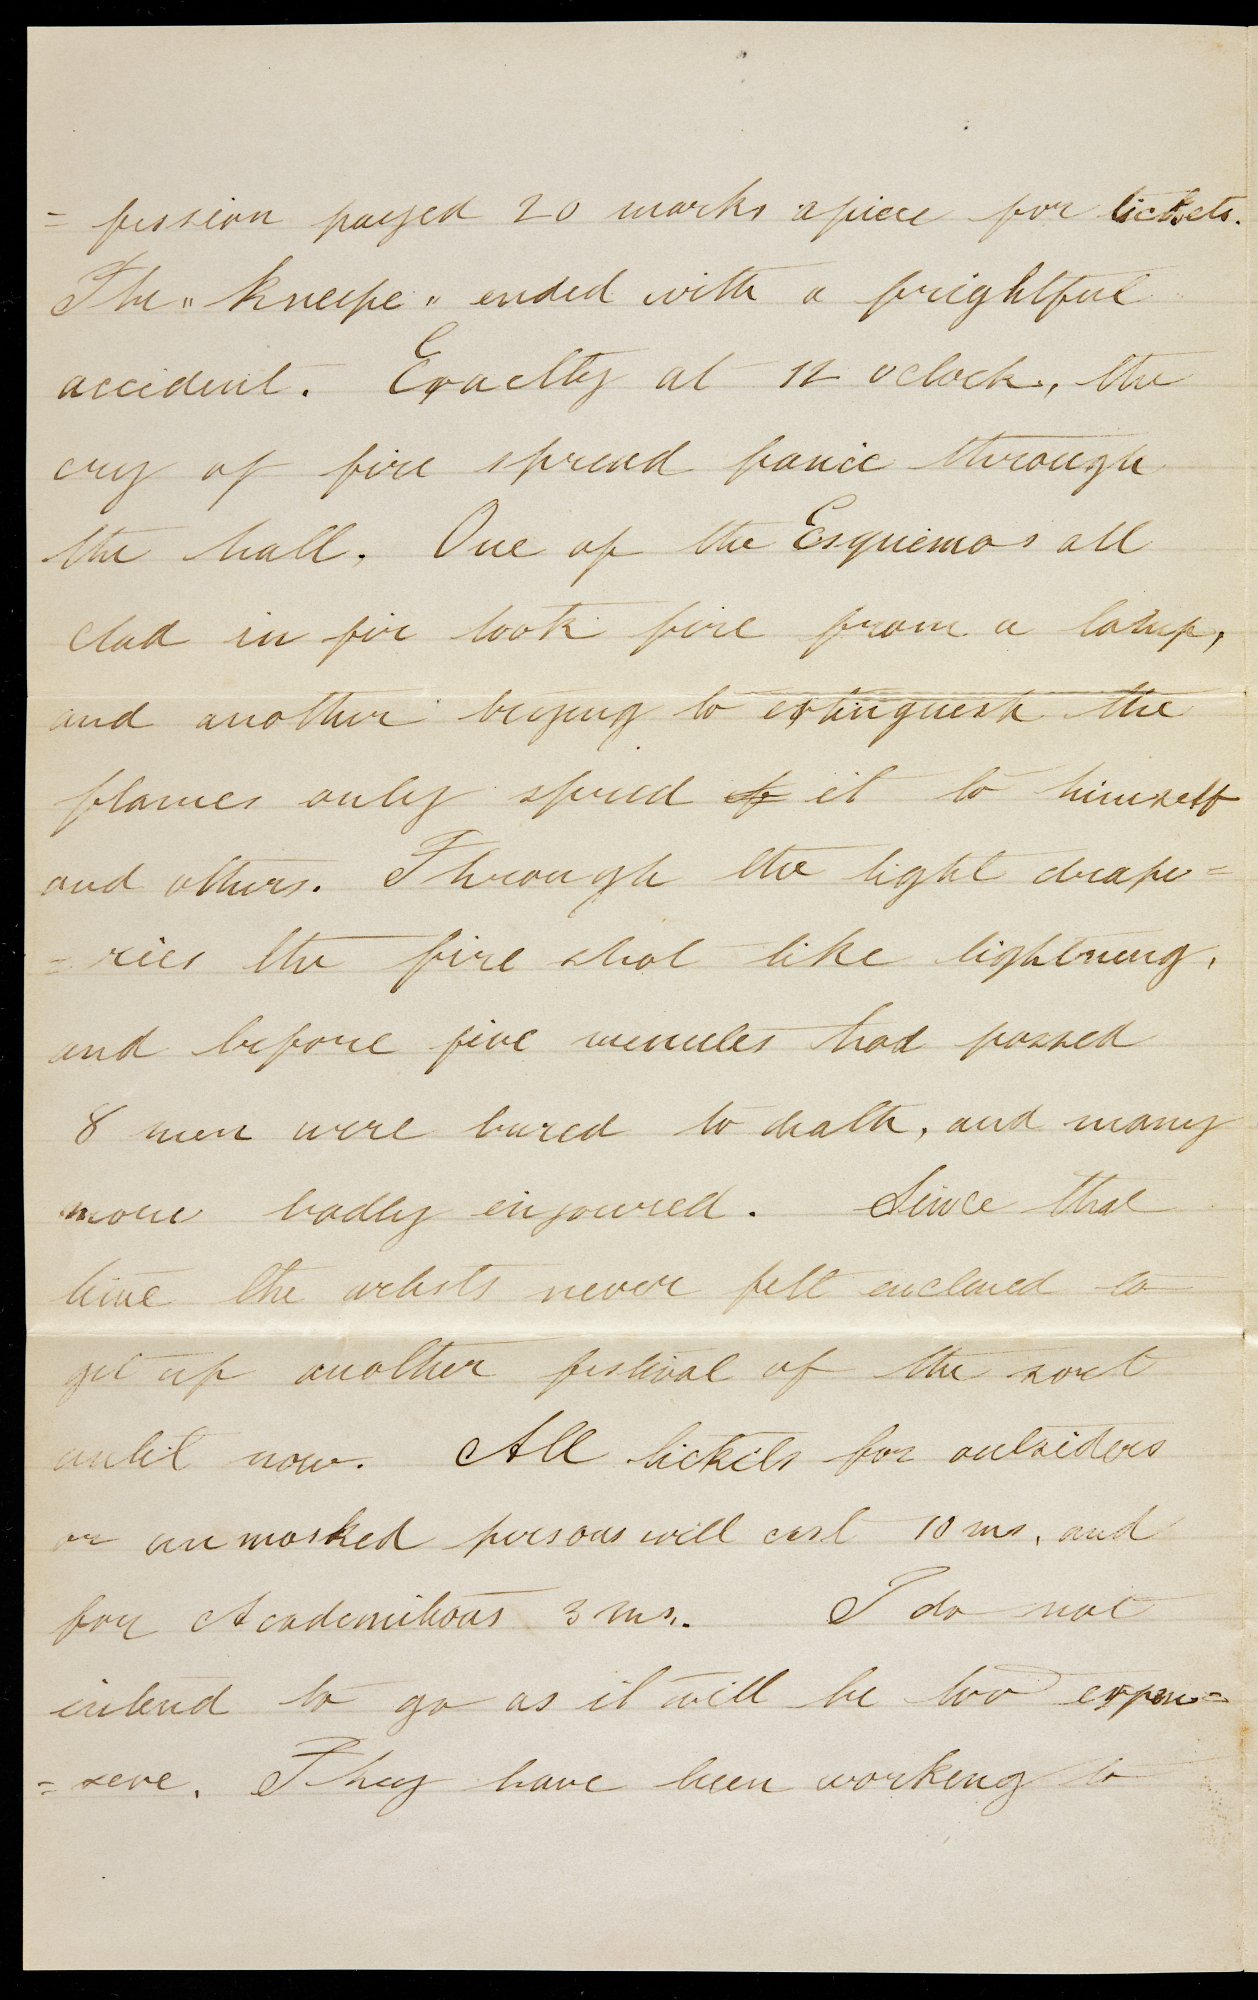 = fession payed 20 marks apiece for tickets.
The „Kneipe„ ended with a frightful
accident. Exactly at 12 oclock, the
cry of fire spread panic through
the hall. One of the Esquimos all
clad in fir took fire from a lamp,
and another trying to extinguish the
flames only spred it to himself
and others. Through the light drape=
=ries the fire shot like lightning,
and before five minutes had passed
8 men were bured to death, and many
more badly enjoured. Since that
time the artists never felt enclined to
get up another festival of the sort
until now. All tickets for outsiders
or unmasked persons will cost 10 ms. and
for Academitions 3 ms. I do not
intend to go as it will be too expen=
=seve. They have been working to